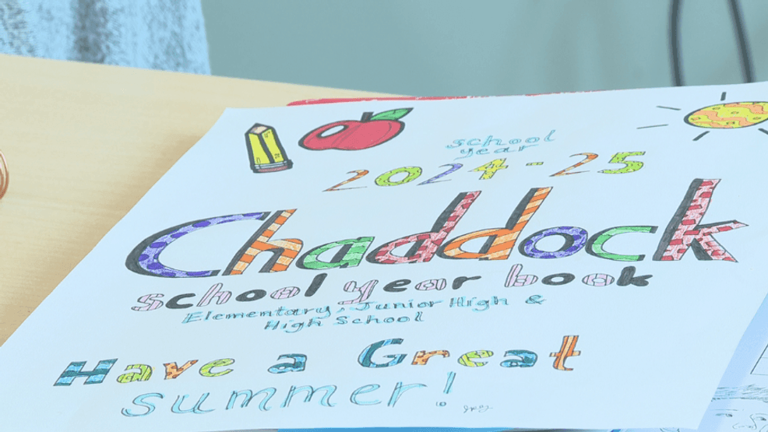 school
year
2024-25
Chaddock
school year book
Elementary, Junior High &
High School
Have a Great
summer!